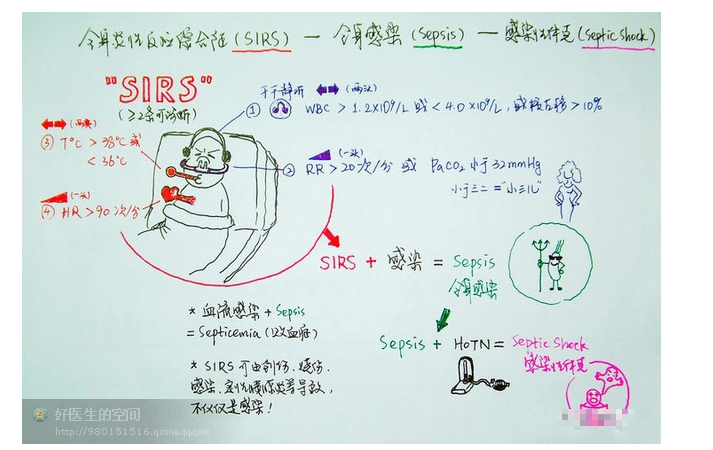 全身炎性反应综合征(SIRS) — 全身感染(Sepsis) — 感染性休克(Septic Shock)
"SIRS"
(≥2条可诊断)
干干静听 (两头)
① WBC > 1.2×10⁹/L 或 < 4.0×10⁹/L, 或核左移 > 10%
(两头)
③ T°C > 38°C 或
< 36°C
(一头)
② RR > 20次/分 或 PaCO2 小于 32mmHg
小于三二 = "小三儿"
(一头)
④ HR > 90 次/分
SIRS + 感染 = Sepsis
全身感染
* 血流感染 + Sepsis
= Septicemia (败血症)
Sepsis + HoTN = Septic Shock
感染性休克
* SIRS 可由创伤、烧伤、
感染、急性胰腺炎等导致,
不仅仅是感染!
好医生的空间
http://980151516.qzone.qq.com